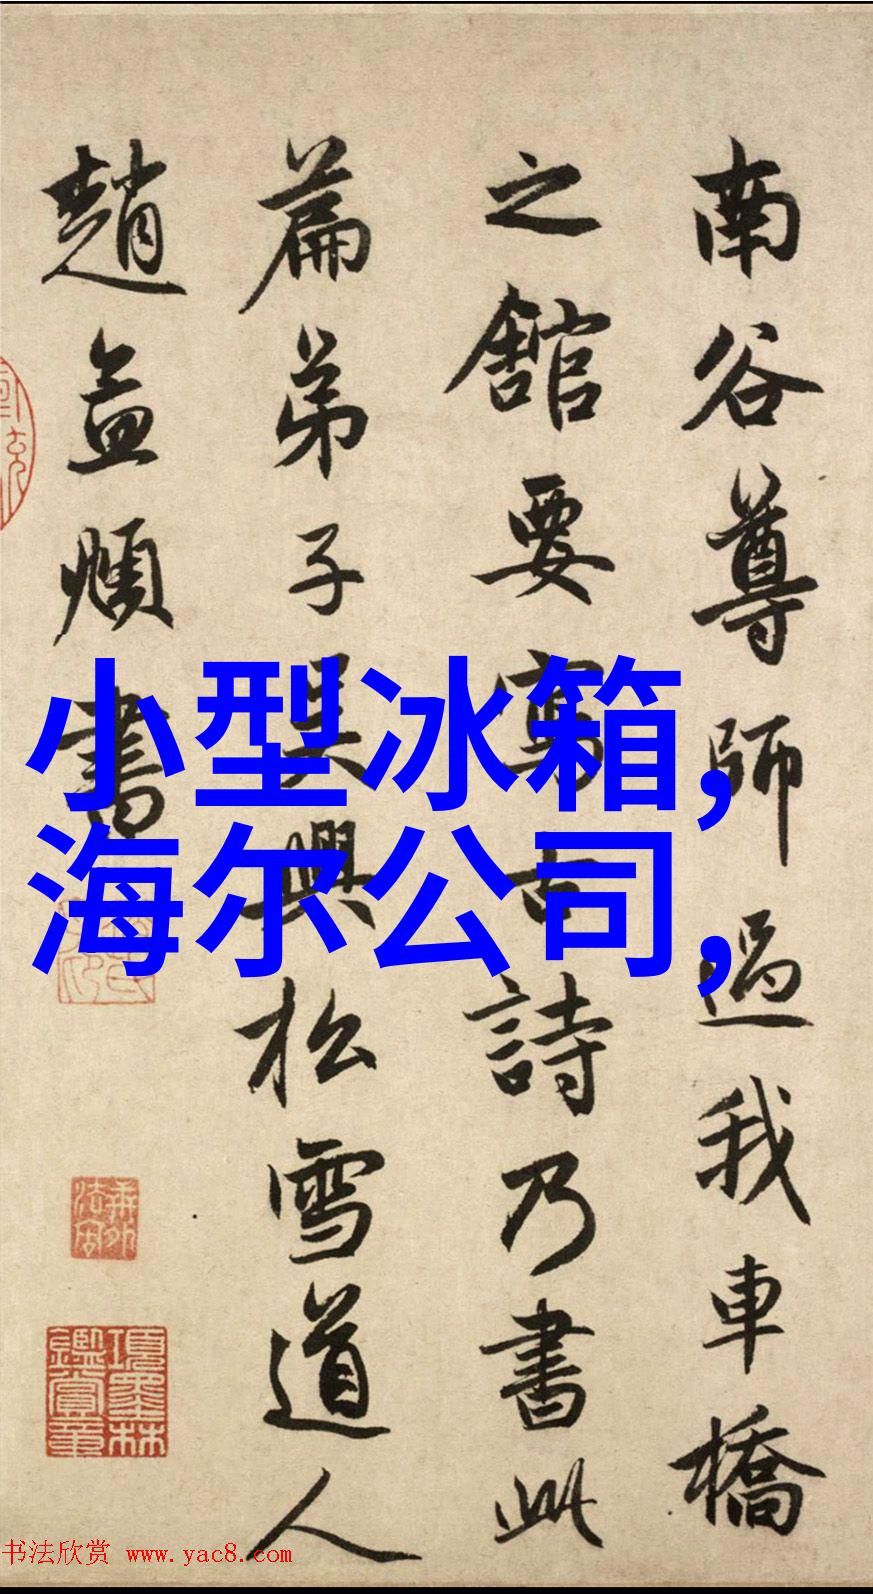 南谷尊師過我車橋
之館要寫古詩乃書此
篇弟子吴興松雪道人
趙孟頫書
小型冰箱,
海尔公司,
項墨林鑑賞章
书法欣赏 www.yac8.com